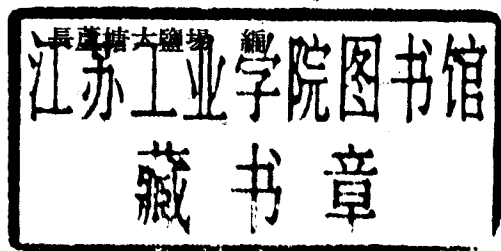 長蘆塘大鹽場 編
江苏工业学院图书馆
藏书章